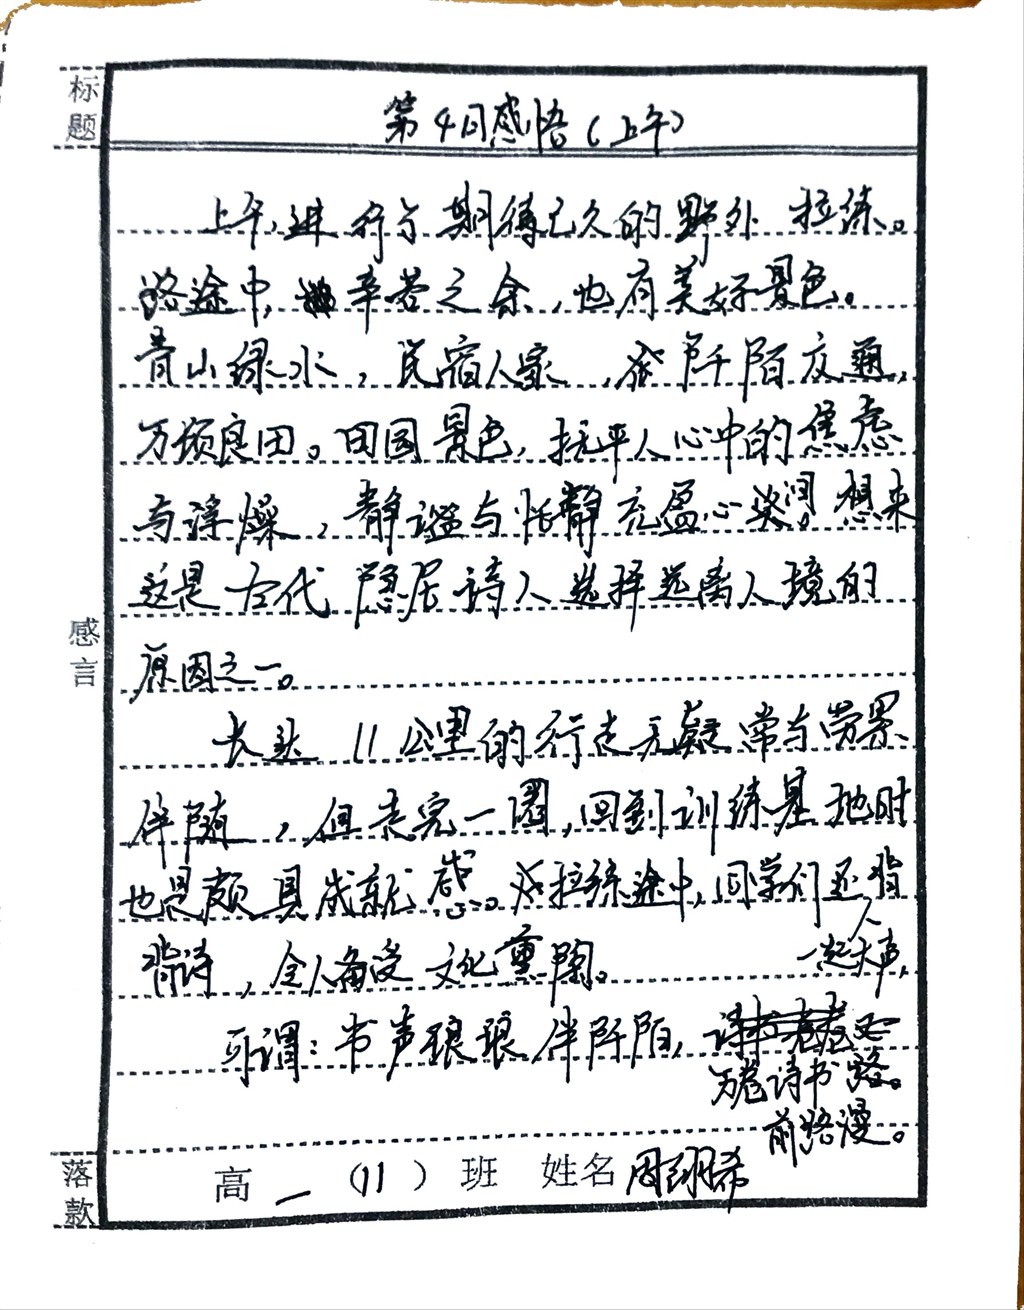 标题
第4日感悟(上午)
上午,进行了期待已久的野外拉练。
路途中,辛苦之余,也有美好景色。
青山绿水,民宿人家,阡陌交通,
万顷良田。田园景色,抚平人心中的焦虑
与浮燥,静谧与恬静充盈心间。想来
这是古代隐居诗人选择远离人境的
原因之一。
感言
长达11公里的行走无疑常与劳累
伴随,但走完一圈,回到训练基地时
也是颇具成就感。拉练途中,同学们还背
背诗,令人备受文化熏陶。
一起大声,
可谓:书声琅琅伴阡陌,
万卷诗书
路。
前路漫。
落款
高一(11)班 姓名周